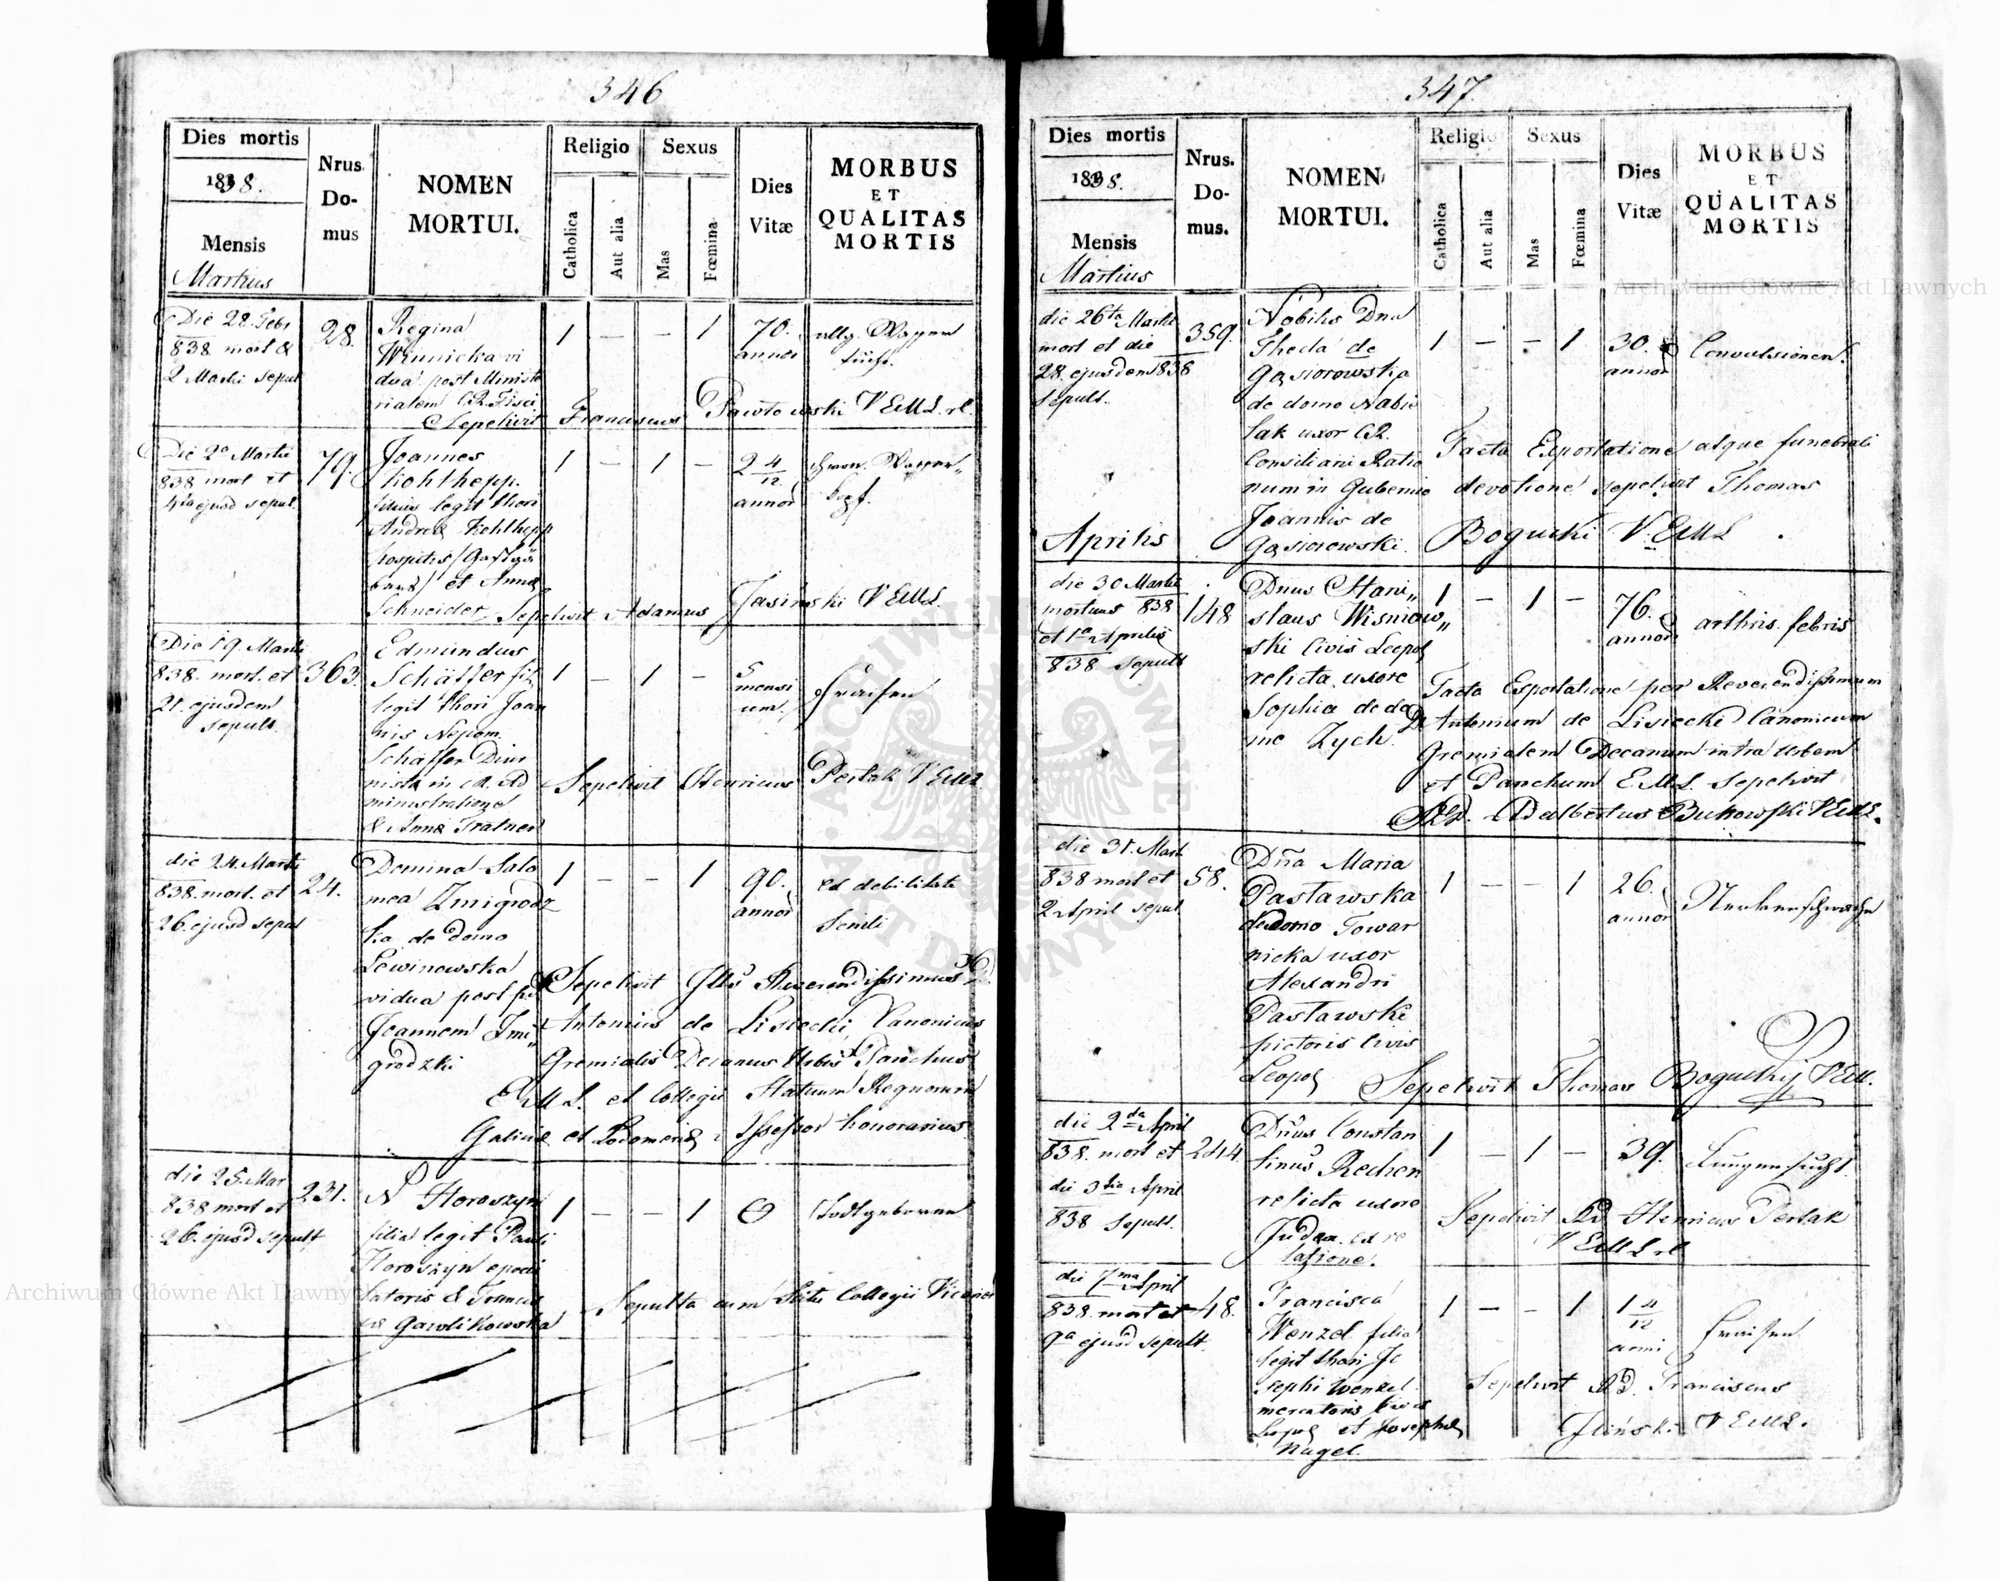 346
Dies mortis
1838.
Mensis
Martius
Nrus.
Do-
mus
NOMEN
MORTUI.
Religio
Catholica
Aut alia
Sexus
Mas
Fœmina
Dies
Vitæ
MORBUS
ET
QUALITAS
MORTIS
Die 28. Febr
838 mort &
2 Martii sepul
28.
Regina
Winnicka vi
dua post Ministe
rialem CR. Fisci
1 — — 1
70.
annor
allg. Wasser
sucht.
Sepelivit Franciscus Pawłowski VEML rl.
Die 2a Martii
838 mort et
4ta ejusd sepul.
79.
Joannes
Kohlhepp.
filius legit thori
Andreæ Kohlhepp
hospitis / Gastge
ber / et Annæ
Schneider
1 — 1 —
2 4/12
annor
chron. Wasser„
kopf.
Sepelivit Adamus Jasiński VEML.
Die 19 Martii
838. mort. et
21. ejusdem
sepult.
363.
Edmundus
Schäffer fil
legit thori Joan
nis Nepom.
Schäffer Diur
nista in CR. Ad
ministratione
& Anna Tratner
1 — 1 —
5
mensi
um.
Fraisen
Sepelivit Henricus Pertak VEML
die 24. Martii
838. mort. et
26. ejusd sepul
24.
Domina Salo
mea Zmigrodz
ka de domo
Lewinowska
vidua post
Joannem Zmi„
grodzki.
1 — — 1
90.
annor
ex debilitate
senili
Sepelivit Illus Reverendissimus
Antonius de Lisiecki, Canonicus
Gremialis Decanus Urbis Parochus
EML. et Collegii Statuum Regnorum
Galiciæ et Lodomeriæ Assessor honorarius.
die 25. Mar
838 mort et
26. ejusd sepult
231.
N Horoszyn
filia legit Pauli
Horoszyn
satoris & Francis
cæ Gawlikowska
1 — — 1
0
Todtgeboren
Sepulta cum Collegii
347
Dies mortis
1838.
Mensis
Martius
Nrus.
Do-
mus.
NOMEN
MORTUI.
Religio
Catholica
Aut alia
Sexus
Mas
Fœmina
Dies
Vitæ
MORBUS
ET
QUALITAS
MORTIS
die 26ta Martii
mort et die
28. ejusdem 838
sepult.
359.
Nobilis Dna
Thecla de
Gąsiorowska
de domo Nabie
lak uxor CR.
Consiliarii Ratio
num in Gubernio
Joannis de
Gąsiorowski.
1 — — 1
30.
annor
Convulsionen.
Facta Exportatione atque funebrali
devotione sepelivit Thomas
Bogucki VEML
Aprilis
die 30 Martii
mortuus 838
et 1a Aprilis
838 sepult
148
Dnus Stani„
slaus Wisniow„
ski Civis Leopol
relicta uxore
Sophia de do
mo Zych.
1 — 1 —
76.
annor
arthris. febris
Facta Exportatione per Reverendissimum
D Antonium de Lisiecki Canonicum
Gremialem Decanum intra Urbem
et Parochum EML. sepelivit
RD. Adalbertus Bukowski VEML.
die 31. Mart
838 mort et
2 April sepul
58.
Dña Maria
Pastawska
de domo Towar
nicka uxor
Alexandri
Pastawski
pictoris Civis
Leopol
1 — — 1
26.
annor
Sepelivit Thomas Bogucki VEML.
die 2da April
838. mort et
die 3tia April
838 sepult.
244.
Dñus Constan
tinus Rechen
relicta uxore
Judea. ex re
latione.
1 — 1 —
39.
Lungensucht
Sepelivit RD Henricus Pertak
VEML rl
die 7ma April
838. mort et
9a ejusd sepult.
48.
Francisca
Wenzel filia
legit thori Jo
sephi Wenzel
mercatoris Civis
Leopol et Josephæ
Nagel.
1 — — 1
1 4/12
anni
Fraisen
Sepelivit RD. Franciscus
Iliński VEML.
Archiwum Główne Akt Dawnych
Archiwum Główne Akt Dawnych
ARCHIWUM GŁÓWNE AKT DAWNYCH